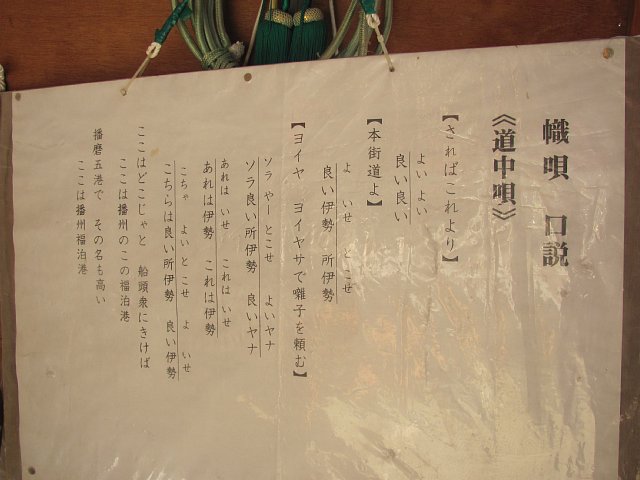 幟唄 口説
《道中唄》
【さればこれより】
よい よい
良い良い
【本街道よ】
よ いせ とこせ
良い伊勢 所伊勢
【ヨイヤ ヨイヤサで囃子を頼む】
ソラ やーとこせ よいヤナ
ソラ良い所伊勢 良いヤナ
あれは いせ これは いせ
あれは伊勢 これは伊勢
こちゃ よいとこせ よ いせ
こちらは良い所伊勢 良い伊勢
ここはどこじゃと 船頭衆にきけば
ここは播州のこの福泊港
播磨五港で その名も高い
ここは播州福泊港